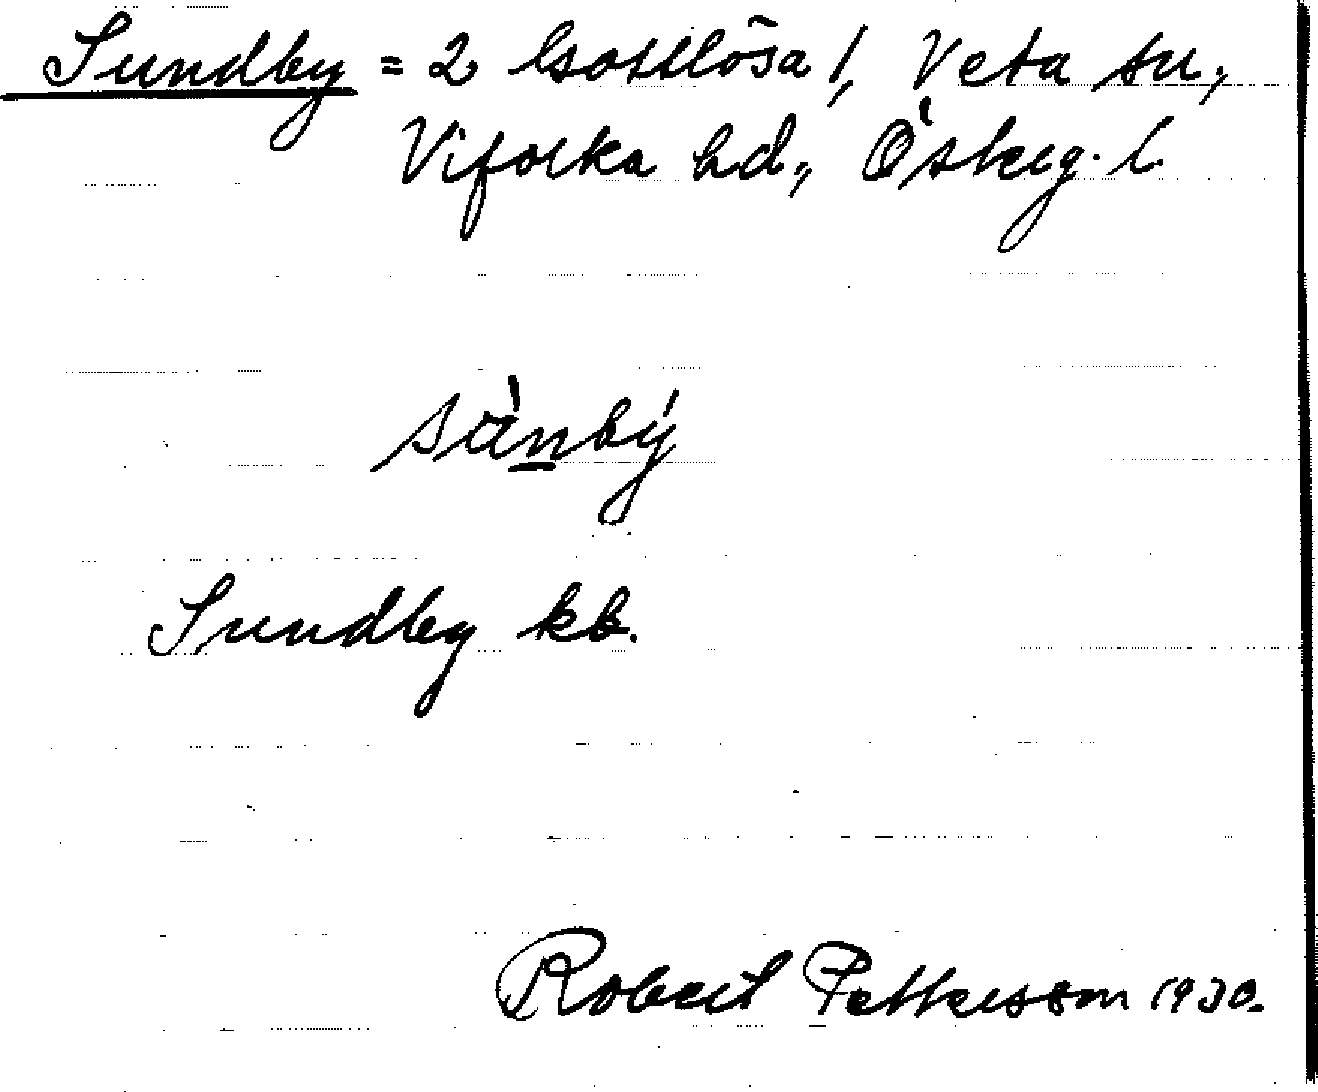 Sundby = 2 Gottlösa 1, Veta sn,
Vifolka hd., Östeg. l.
sùnbý
Sundby kb.
Robert Pettersson 1930.